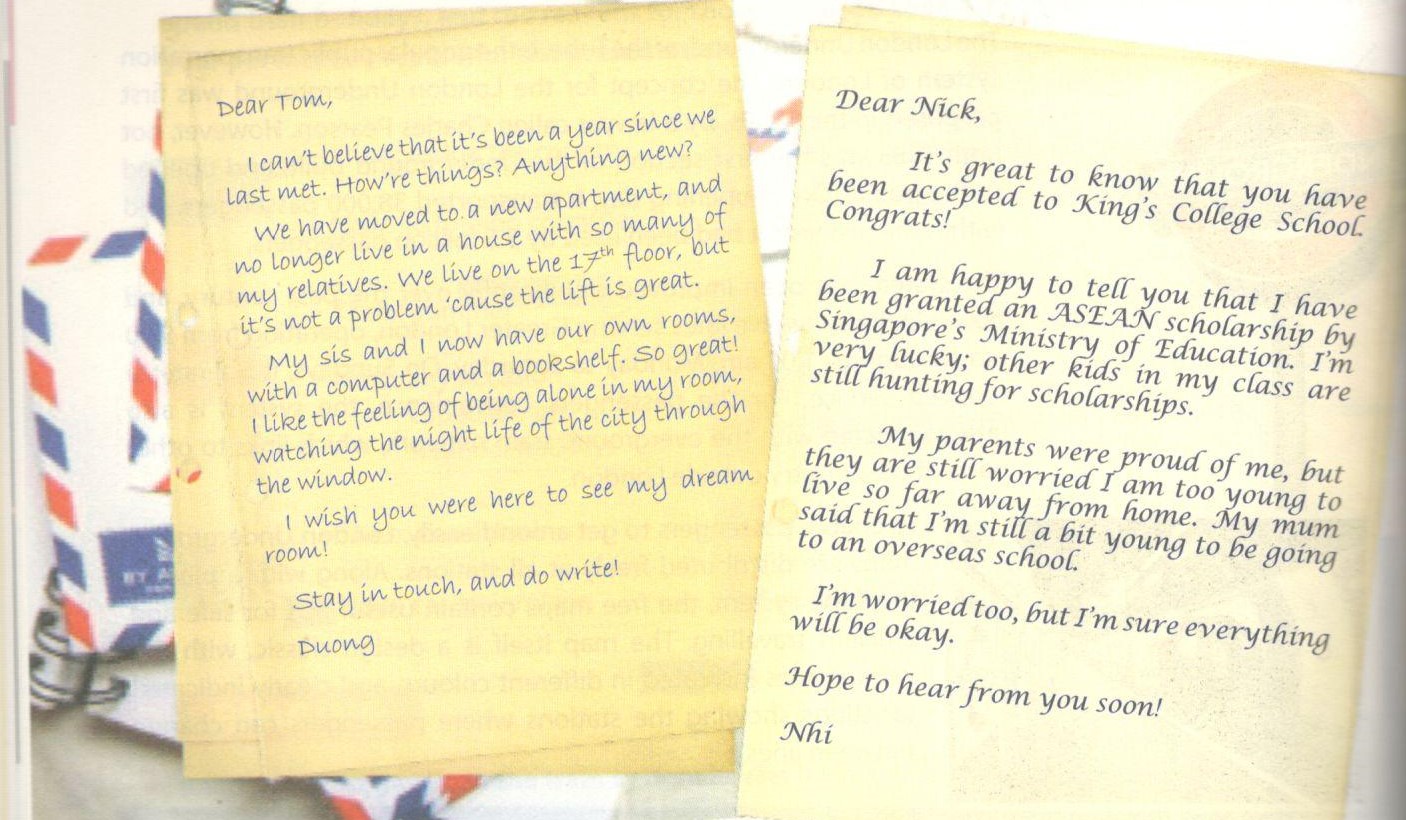 Dear Tom,
I can't believe that it's been a year since we
last met. How're things? Anything new?
We have moved to a new apartment, and
no longer live in a house with so many of
my relatives. We live on the 17th floor, but
it's not a problem 'cause the lift is great.
My sis and I now have our own rooms,
with a computer and a bookshelf. So great!
I like the feeling of being alone in my room,
watching the night life of the city through
the window.
I wish you were here to see my dream
room!
Stay in touch, and do write!
Duong
Dear Nick,
It's great to know that you have
been accepted to King's College School.
Congrats!
I am happy to tell you that I have
been granted an ASEAN scholarship by
Singapore's Ministry of Education. I'm
very lucky; other kids in my class are
still hunting for scholarships.
My parents were proud of me, but
they are still worried I am too young to
live so far away from home. My mum
said that I'm still a bit young to be going
to an overseas school.
I'm worried too, but I'm sure everything
will be okay.
Hope to hear from you soon!
Nhi
BY A